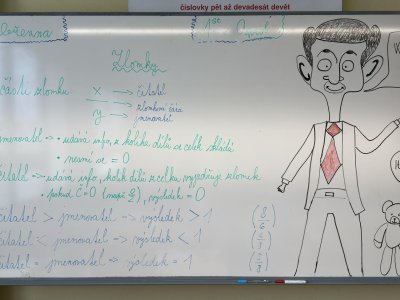 číslovky pět až devadesát devět
1st April
Zlomky
části zlomku x → čitatel
→ zlomková čára
y → jmenovatel
jmenovatel → • udává info, z kolika dílů se celek skládá
• nesmí se = 0
čitatel → • udává info, kolik dílů z celku vyjadřuje zlomek
• pokud Č=0 (např. ), výsledek = 0
čitatel > jmenovatel → výsledek > 1
čitatel < jmenovatel → výsledek < 1
čitatel = jmenovatel → výsledek = 1